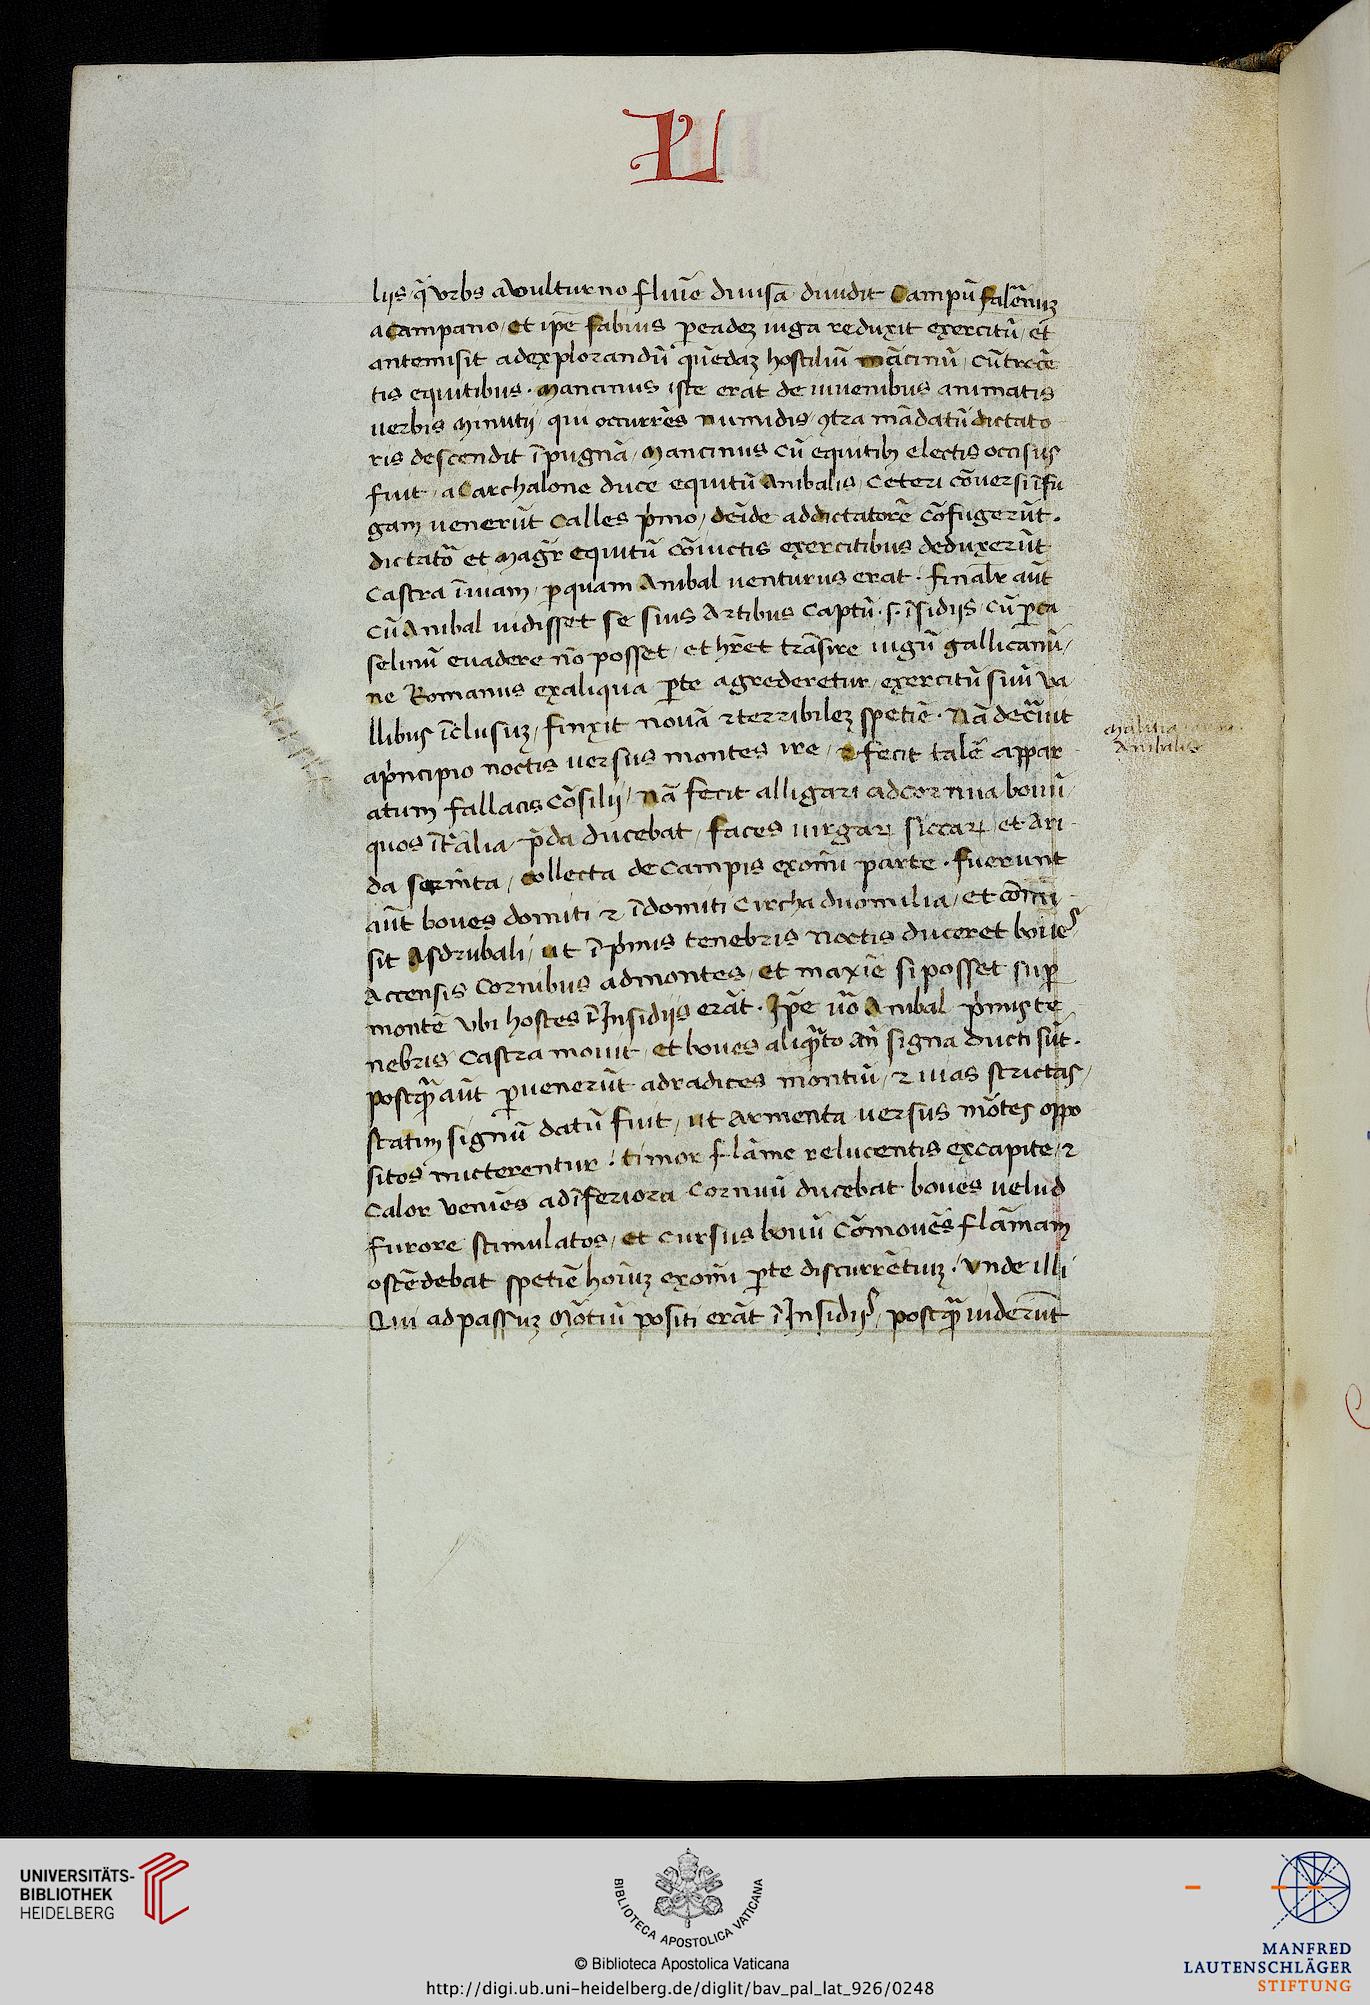 L
liis, q̄ urbs a vulturno fluīe diuisa diuidit Campū falēnuz
a Campano, et ipē fabius peadez iuga reduxit exercitū, et
antemisit ad explorandū quēdaz hostiliū mācinū, cū trecē
tis equitibus. Mancinus iste erat de iuuenibus animatis
verbis Minutij, qui occurrēs numidis ꝯtra mādatū dictato
ris descendit ī pugnā, Mancinus cū equitibꝫ electis occisus
fuit, a Carchalone duce equitū Anibalis, Ceteri cōuersi ī fu
gam venerūt Calles pͥmo, deīde ad dictatorē cōfugerūt.
dictatō et Magr̄ equitū cōiuctis exercitibus deduxerūt
Castra ī uiam, ꝑ quam Anibal venturus erat. finalr̄ aūt
cū Anibal uidisset se suis Artibus Captū .s. īsidijs, cū ꝑ ca
selinū euadere nō posset, et hr̄et trāsire iugū gallicanū,
ne Romanus ex aliqua ꝑte agrederetur, exercitū suū va
llibus īclusuz, finxit nouā ⁊ terribilez spetiē. Nā decreuit
a pͥncipio noctis versus montes ire, ⁊ fecit talē appar
atum fallacis Cōsilij, nā fecit alligari ad cornua bouū,
quos ī Italia p̄da ducebat, faces uirgaꝝ siccaꝝ, et Ari
da sermīta, collecta de Campis ex omī parte. fuerunt
aūt boues domiti ⁊ īdomiti Circha duomilia, et cōmi
sit Asdrubali, ut ī pͥmis tenebris noctis duceret boues
Accensis Cornibus ad montes, et maxīe si posset suꝑ
montē vbi hostes ī Insidijs erāt. Ipē uō Anibal pͥmis te
nebris Castra mouit, et boues aliqͣto an̄ signa ducti sūt.
postqͣ aūt ꝑuenerūt ad radices montiū, ⁊ uias strictas,
statim signū datū fuit, ut Armenta versus mōtes oppo
sitos micterentur. timor flāme relucentis ex capite, ⁊
Calor veniēs ad īferiora Cornuū ducebat boues velud
furore stimulatos, et Cursus bouū Cōmouēs flāmam
ostēdebat spetiē hoīuz ex omī ꝑte discurrētiuz. Vnde illi
Qui ad passuz Mōtiū positi erāt ī Insidijs, postqͣ uiderūt
Malitia
Anibalis
UNIVERSITÄTS-
BIBLIOTHEK
HEIDELBERG
BIBLIOTECA APOSTOLICA VATICANA
© Biblioteca Apostolica Vaticana
http://digi.ub.uni-heidelberg.de/diglit/bav_pal_lat_926/0248
MANFRED
LAUTENSCHLÄGER
STIFTUNG